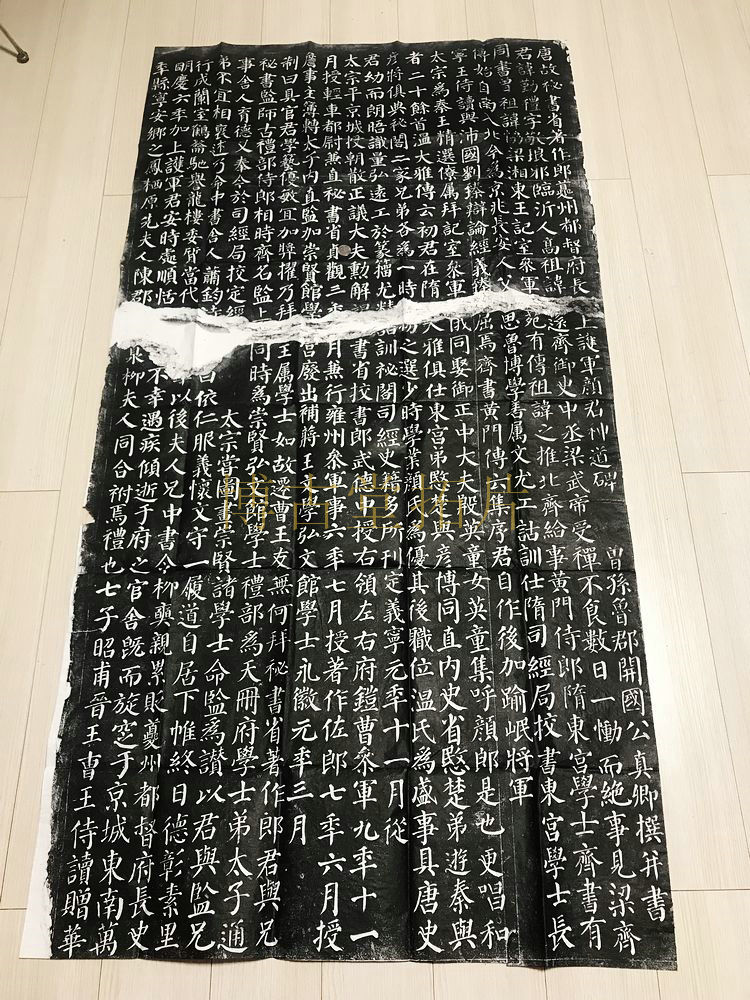 唐故秘書省著作郎夔州都督府長上護軍顏君神道碑
曾孫魯郡開國公真卿撰并書
君諱勤禮字敬琅邪臨沂人高祖諱遠齊御史中丞梁武帝受禪不食數日一慟而絕事見梁齊
周書曾祖諱協梁湘東王記室參軍文苑有傳祖諱之推北齊給事黃門侍郎隋東宮學士齊書有
傳始自南入北今為京兆長安人父思魯博學善屬文尤工詁訓仕隋司經局挍書東宮學士長
寧王侍讀與沛國劉臻辯論經義臻屈焉齊書黃門傳云集序君自作後加踰岷將軍
太宗為秦王精選僚屬拜記室參軍儀同娶御正中大夫殷英童女英童集呼顏郎是也更唱和
者二十餘首溫大雅傳云初君在隋大雅俱仕東宮弟愍楚與彥博同直內史省愍楚弟遊秦與
彥將俱典秘閣二家兄弟各為一時物之選少時學業顏氏為優其後職位溫氏為盛事具唐史
君幼而朗晤識量弘遠工於篆籀尤精詁訓秘閣司經史籍多所刊定義寧元年十一月從
太宗平京城授朝散正議大夫勳解褐書省挍書郎武德中授右領左右府鎧曹參軍九年十一
月授輕車都尉兼直秘書省貞觀三年月兼行雍州參軍事六年七月授著作佐郎七年六月授
詹事主簿轉太子內直監加崇賢館學宮廢出補蔣王文學弘文館學士永徽元年三月
制曰具官君學藝優敏宜加獎擢乃拜王屬學士如故遷曹王友無何拜秘書省著作郎君與兄
秘書監師古禮部侍郎相時齊名監同時為崇賢弘文館學士禮部為天冊府學士弟太子通
事舍人育德又奉令於司經局挍定經太宗嘗圖畫崇賢諸學士命監為讚以君與監兄
弟不宜相褒述乃命中書舍人蕭鈞特曰依仁服義懷文守一履道自居下帷終日德彰素里
行成蘭室鶴籥馳譽龍樓委質當代以後夫人兄中書令柳奭親累貶夔州都督府長史
明慶六年加上護軍君安時處順恬不幸遇疾傾逝于府之官舍既而旋窆于京城東南萬
年縣寧安鄉之鳳栖原先夫人陳郡泉柳夫人同合祔焉禮也七子昭甫晉王曹王侍讀贈華
博古堂拓片